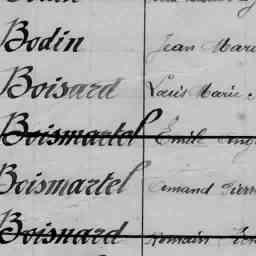 Bodin Jean Mari
Boisard Louis Marie
Boismartel Emile Aug
Boismartel Armand Pierre
Boisnard Romain